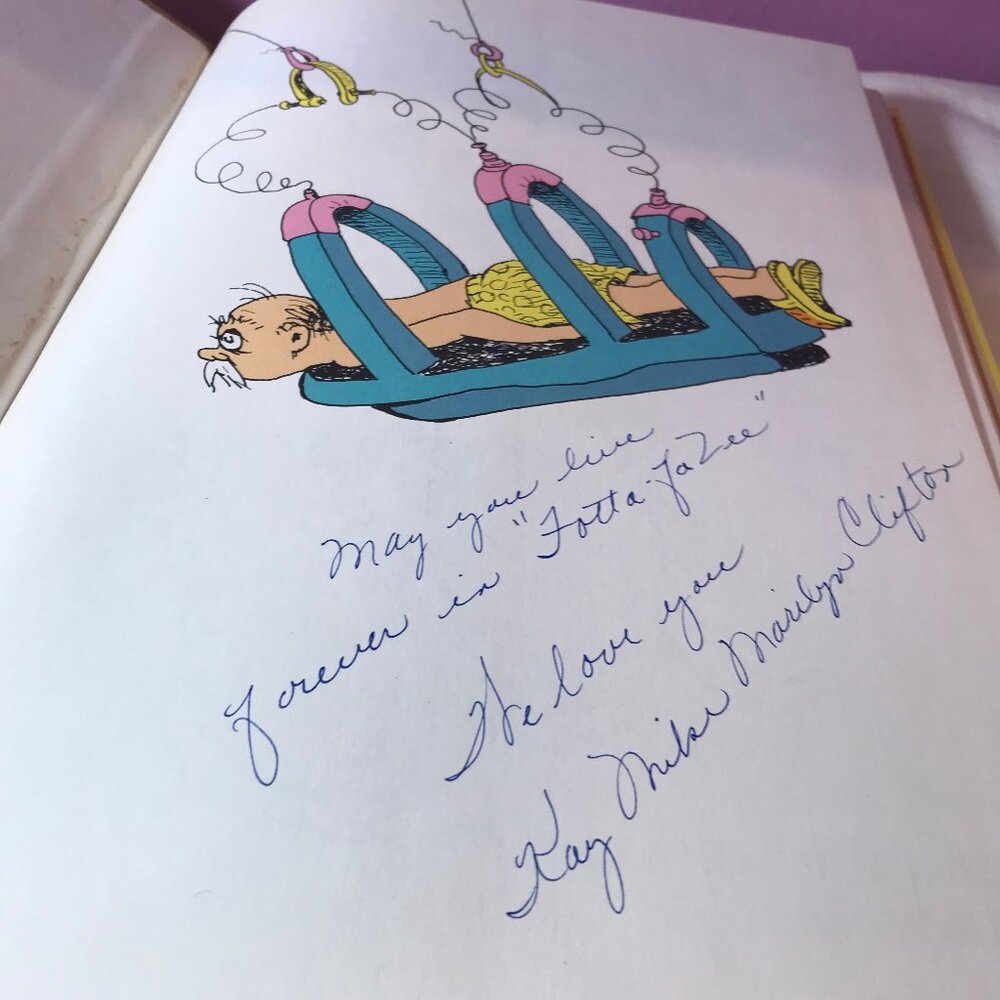 May you live
forever in "Fotta-fa-Zee"
We love you
Kay Mike Marilyn Clifton